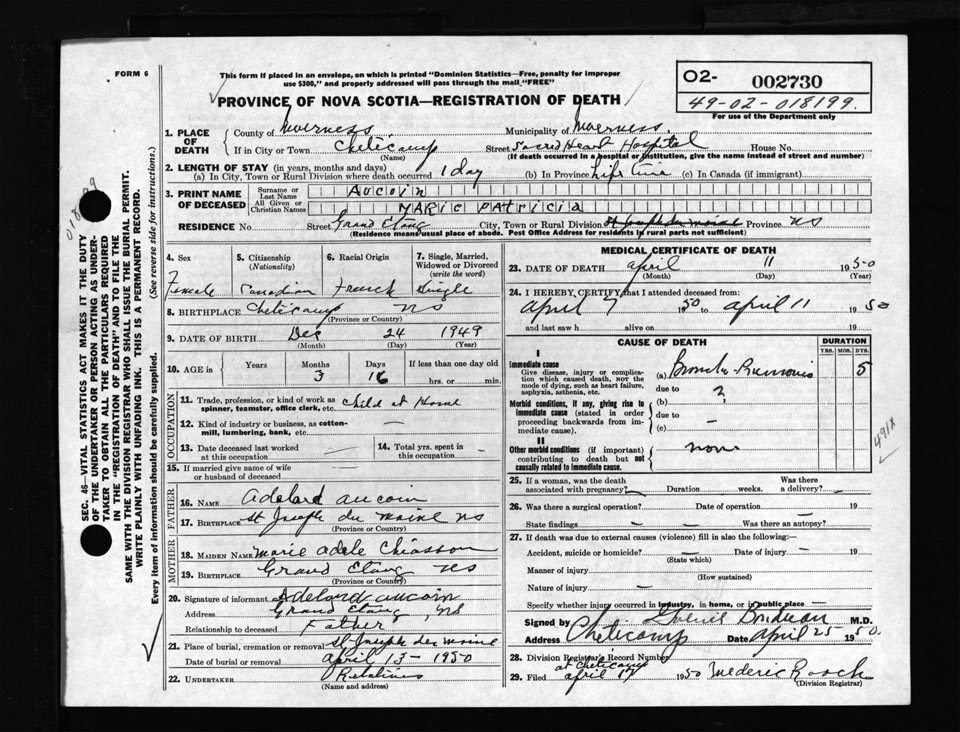 FORM 6
This form if placed in an envelope, on which is printed "Dominion Statistics—Free, penalty for improper
use $300," and properly addressed will pass through the mail "FREE"
PROVINCE OF NOVA SCOTIA—REGISTRATION OF DEATH
02- 002730
49-02-018199.
For use of the Department only
1. PLACE OF DEATH
County of Inverness Municipality of Inverness.
If in City or Town Cheticamp Street Sacred Heart Hospital House No.
(Name) (If death occurred in a hospital or institution, give the name instead of street and number)
2. LENGTH OF STAY (in years, months and days)
(a) In City, Town or Rural Division where death occurred 1 day (b) In Province Life time (c) In Canada (if immigrant)
3. PRINT NAME OF DECEASED
Surname or Last Name Aucoin
All Given or Christian Names MARie PATRiCiA
RESIDENCE No Street Grand Etang City, Town or Rural Division St Joseph du moine Province NS
(Residence means usual place of abode. Post Office Address for residents in rural parts not sufficient)
4. Sex
Female
5. Citizenship
(Nationality)
Canadian
6. Racial Origin
French
7. Single, Married,
Widowed or Divorced
(write the word)
Single
8. BIRTHPLACE Cheticamp NS
(Province or Country)
9. DATE OF BIRTH Dec 24 1949
(Month) (Day) (Year)
10. AGE in Years Months Days If less than one day old
3 16 hrs. or min.
OCCUPATION
11. Trade, profession, or kind of work as
spinner, teamster, office clerk, etc. Child at Home
12. Kind of industry or business, as cotton-
mill, lumbering, bank, etc. —
13. Date deceased last worked
at this occupation —
14. Total yrs. spent in
this occupation —
15. If married give name of wife
or husband of deceased
FATHER
16. NAME Adelard Aucoin
17. BIRTHPLACE St Joseph du Moine NS
(Province or Country)
MOTHER
18. MAIDEN NAME Marie Adele Chiasson
19. BIRTHPLACE Grand Etang NS
(Province or Country)
20. Signature of informant Adelard Aucoin
Address Grand Etang, NS
Relationship to deceased Father
21. Place of burial, cremation or removal St Joseph du Moine
Date of burial or removal April 13 - 1950
22. UNDERTAKER Relatives
(Name and address)
MEDICAL CERTIFICATE OF DEATH
23. DATE OF DEATH April 11 1950
(Month) (Day) (Year)
24. I HEREBY CERTIFY that I attended deceased from:
April 7 1950 to April 11 1950
and last saw h alive on 19
CAUSE OF DEATH
DURATION
YRS. MOS. DYS.
I
Immediate cause
Give disease, injury or complica-
tion which caused death, NOT the
mode of dying, such as heart failure,
asphyxia, asthenia, etc.
(a) 5
due to
Morbid conditions, if any, giving rise to
immediate cause (stated in order
proceeding backwards from im-
mediate cause).
(b) ?
due to
(c) —
II
Other morbid conditions (if important)
contributing to death but not
causally related to immediate cause.
none
491X
25. If a woman, was the death
associated with pregnancy? Duration weeks. Was there
a delivery? —
26. Was there a surgical operation? Date of operation — 19
State findings — — Was there an autopsy?
27. If death was due to external causes (violence) fill in also the following:—
Accident, suicide or homicide? — Date of injury — 19
(State which)
Manner of injury
(How sustained)
Nature of injury —
Specify whether injury occurred in industry, in home, or in public place —
Signed by M.D.
Address Cheticamp Date April 25 1950
28. Division Registrar's Record Number
at Cheticamp
29. Filed April 17 1950 Frederic Roach
(Division Registrar)
SEC. 46—VITAL STATISTICS ACT MAKES IT THE DUTY
OF THE UNDERTAKER OR PERSON ACTING AS UNDER-
TAKER TO OBTAIN ALL THE PARTICULARS REQUIRED
IN THE "REGISTRATION OF DEATH" AND TO FILE THE
SAME WITH THE DIVISION REGISTRAR WHO SHALL ISSUE THE BURIAL PERMIT.
WRITE PLAINLY WITH UNFADING INK. THIS IS A PERMANENT RECORD.
Every item of information should be carefully supplied. (See reverse side for instructions.)